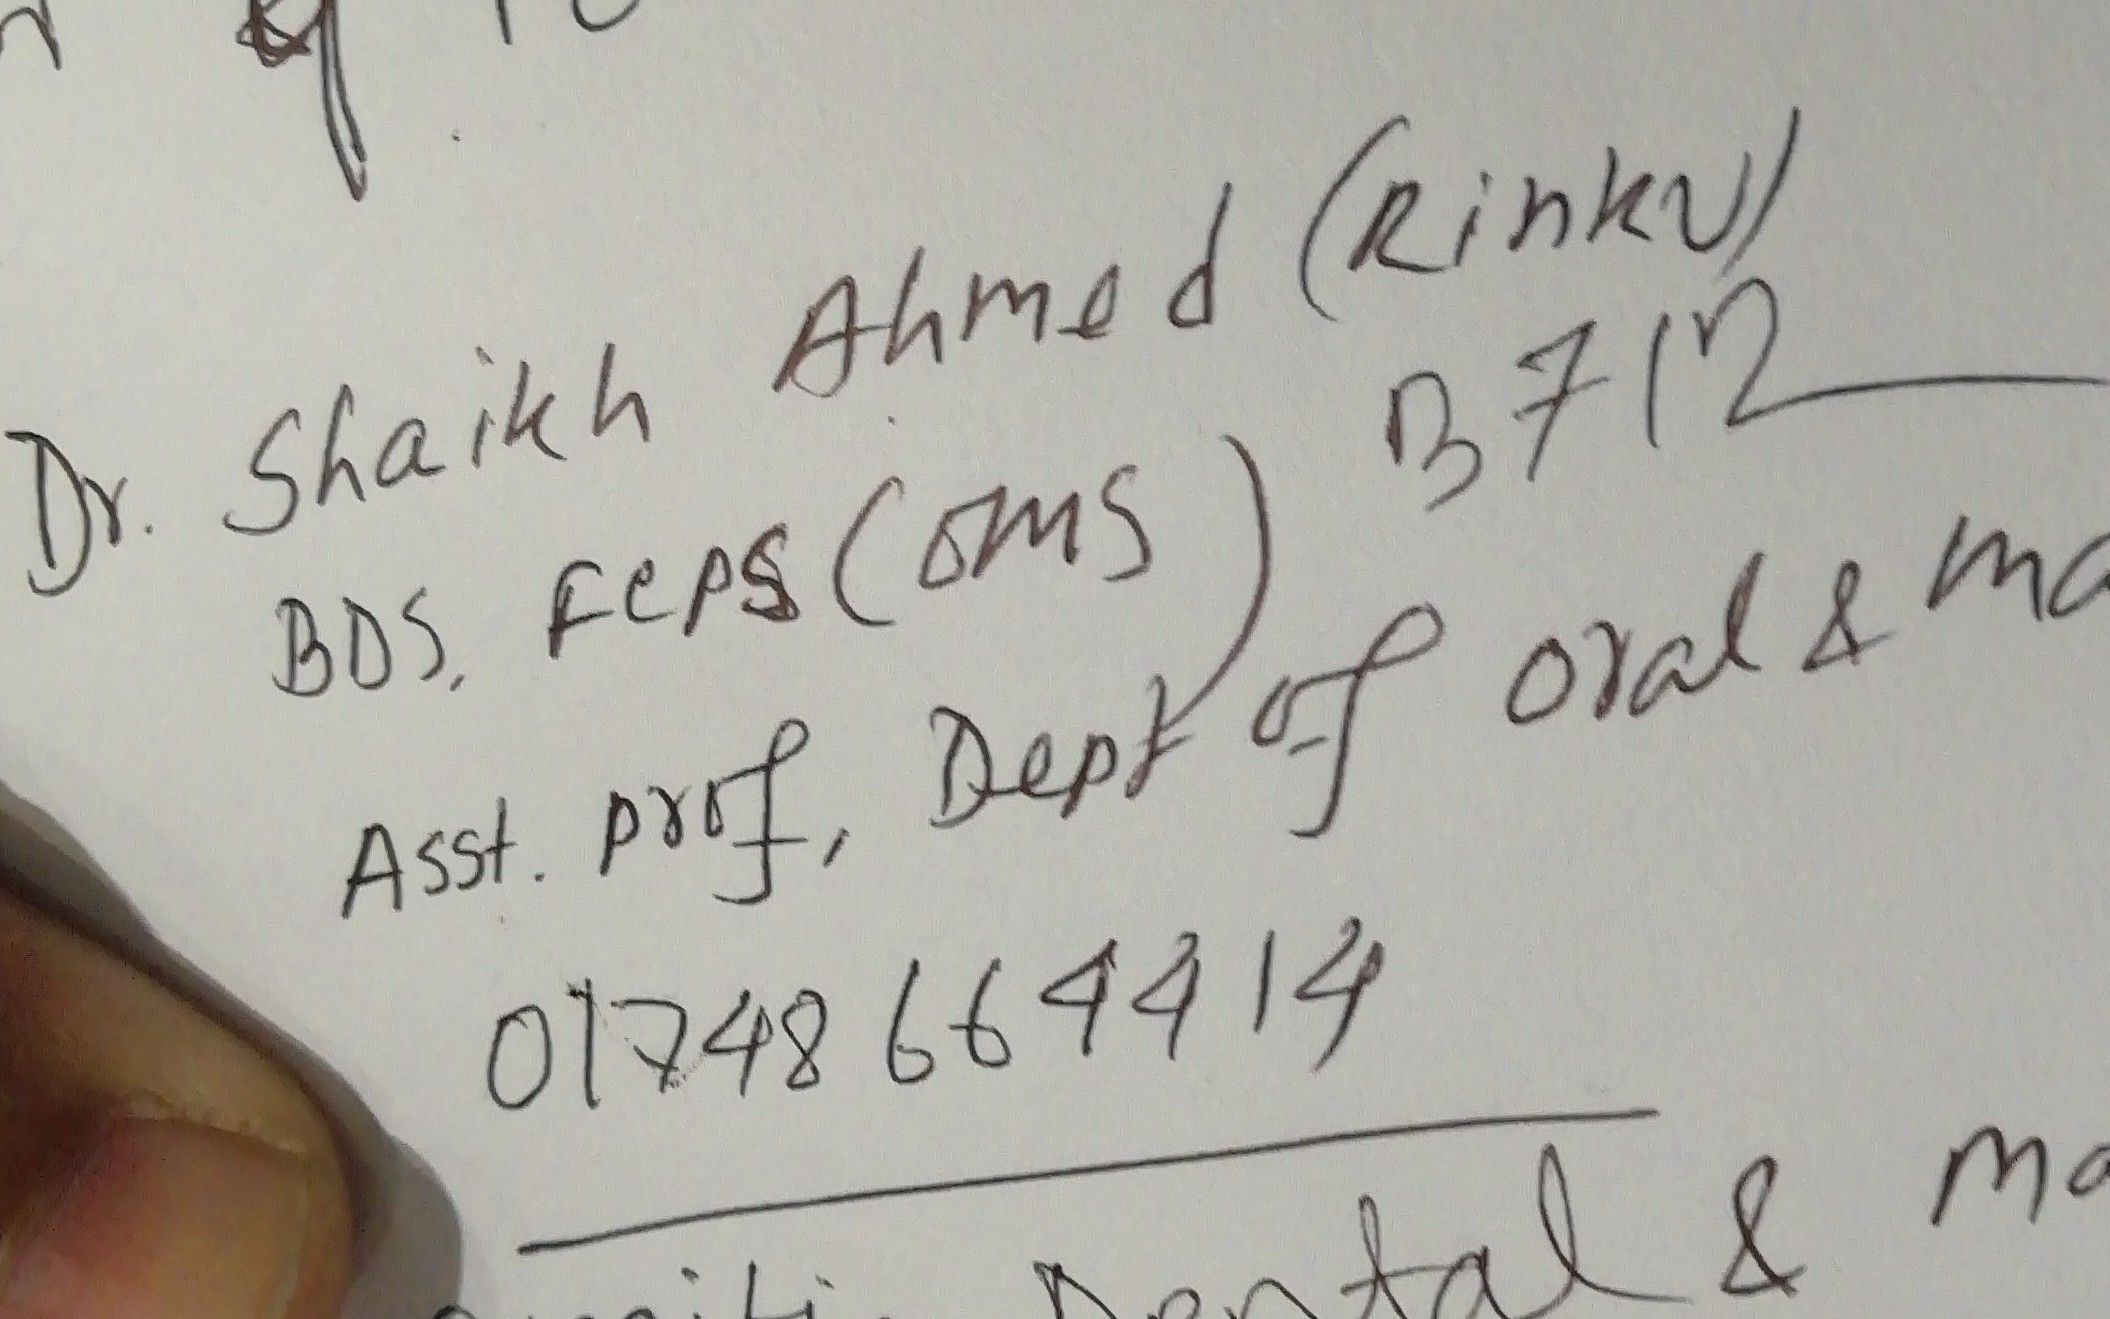 Dr. Shaikh Ahmed (Rinku)
B712
BDS, FCPS (OMS)
Asst. prof, Dept of oral & ma
01748664414
Dental & ma